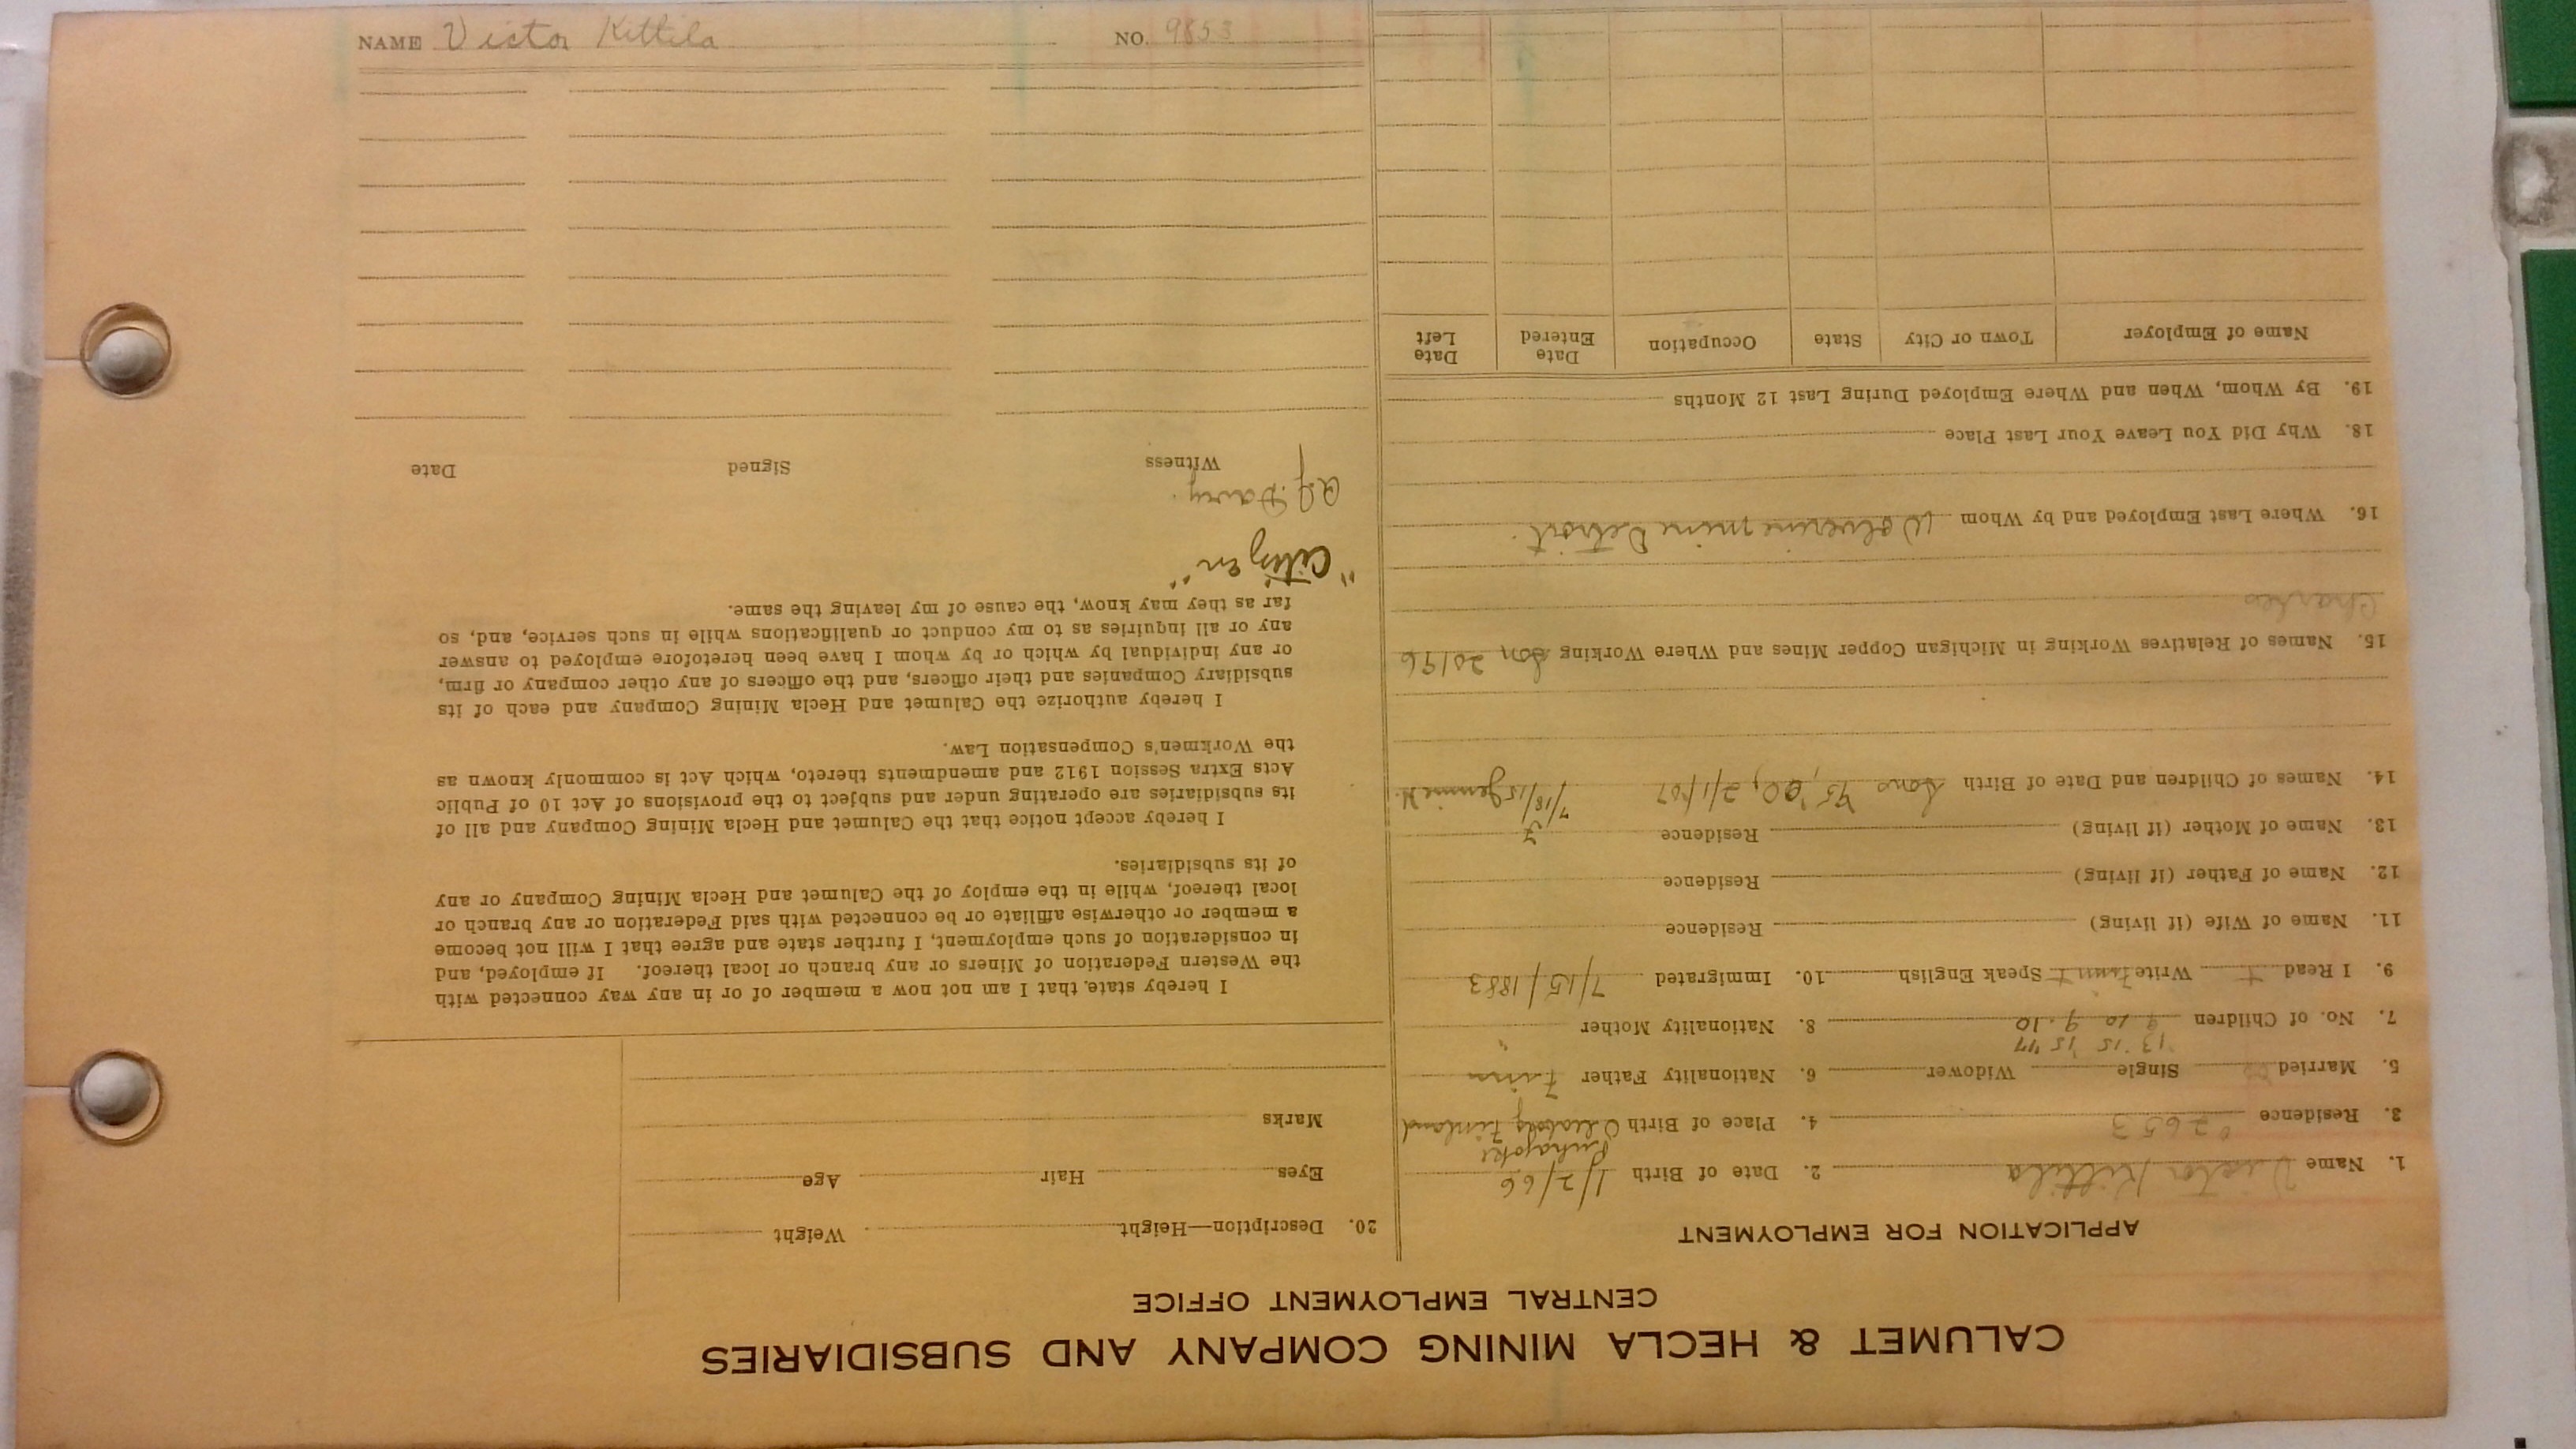 CALUMET & HECLA MINING COMPANY AND SUBSIDIARIES
CENTRAL EMPLOYMENT OFFICE
APPLICATION FOR EMPLOYMENT
1. Name Victor Kittila 2. Date of Birth 1/2/66
Pyhajoki
3. Residence 2653 4. Place of Birth Finland
5. Married Single Widower 6. Nationality Father Finn
'13 '15 '15 '17
7. No. of Children 9 10 9 10 8. Nationality Mother "
9. I Read + Write Finn + Speak English 10. Immigrated 7/15/1883
11. Name of Wife (if living) Residence
12. Name of Father (if living) Residence
13. Name of Mother (if living) Residence
14. Names of Children and Date of Birth Sons 2/1/07 7/18/15 Jennie
15. Names of Relatives Working in Michigan Copper Mines and Where Working Son 20196
Charles
16. Where Last Employed and by Whom Wolverine mine Detroit.
18. Why Did You Leave Your Last Place
19. By Whom, When and Where Employed During Last 12 Months
Name of Employer Town or City State Occupation Date Entered Date Left
20. Description—Height Weight
Eyes Hair Age
Marks
I hereby state, that I am not now a member of or in any way connected with
the Western Federation of Miners or any branch or local thereof. If employed, and
in consideration of such employment, I further state and agree that I will not become
a member or otherwise affiliate or be connected with said Federation or any branch or
local thereof, while in the employ of the Calumet and Hecla Mining Company or any
of its subsidiaries.
I hereby accept notice that the Calumet and Hecla Mining Company and all of
its subsidiaries are operating under and subject to the provisions of Act 10 of Public
Acts Extra Session 1912 and amendments thereto, which Act is commonly known as
the Workmen's Compensation Law.
I hereby authorize the Calumet and Hecla Mining Company and each of its
subsidiary Companies and their officers, and the officers of any other company or firm,
or any individual by which or by whom I have been heretofore employed to answer
any or all inquiries as to my conduct or qualifications while in such service, and, so
far as they may know, the cause of my leaving the same.
"Citizen"
A.J. Davey.
Witness Signed Date
NAME Victor Kittila NO. 9853